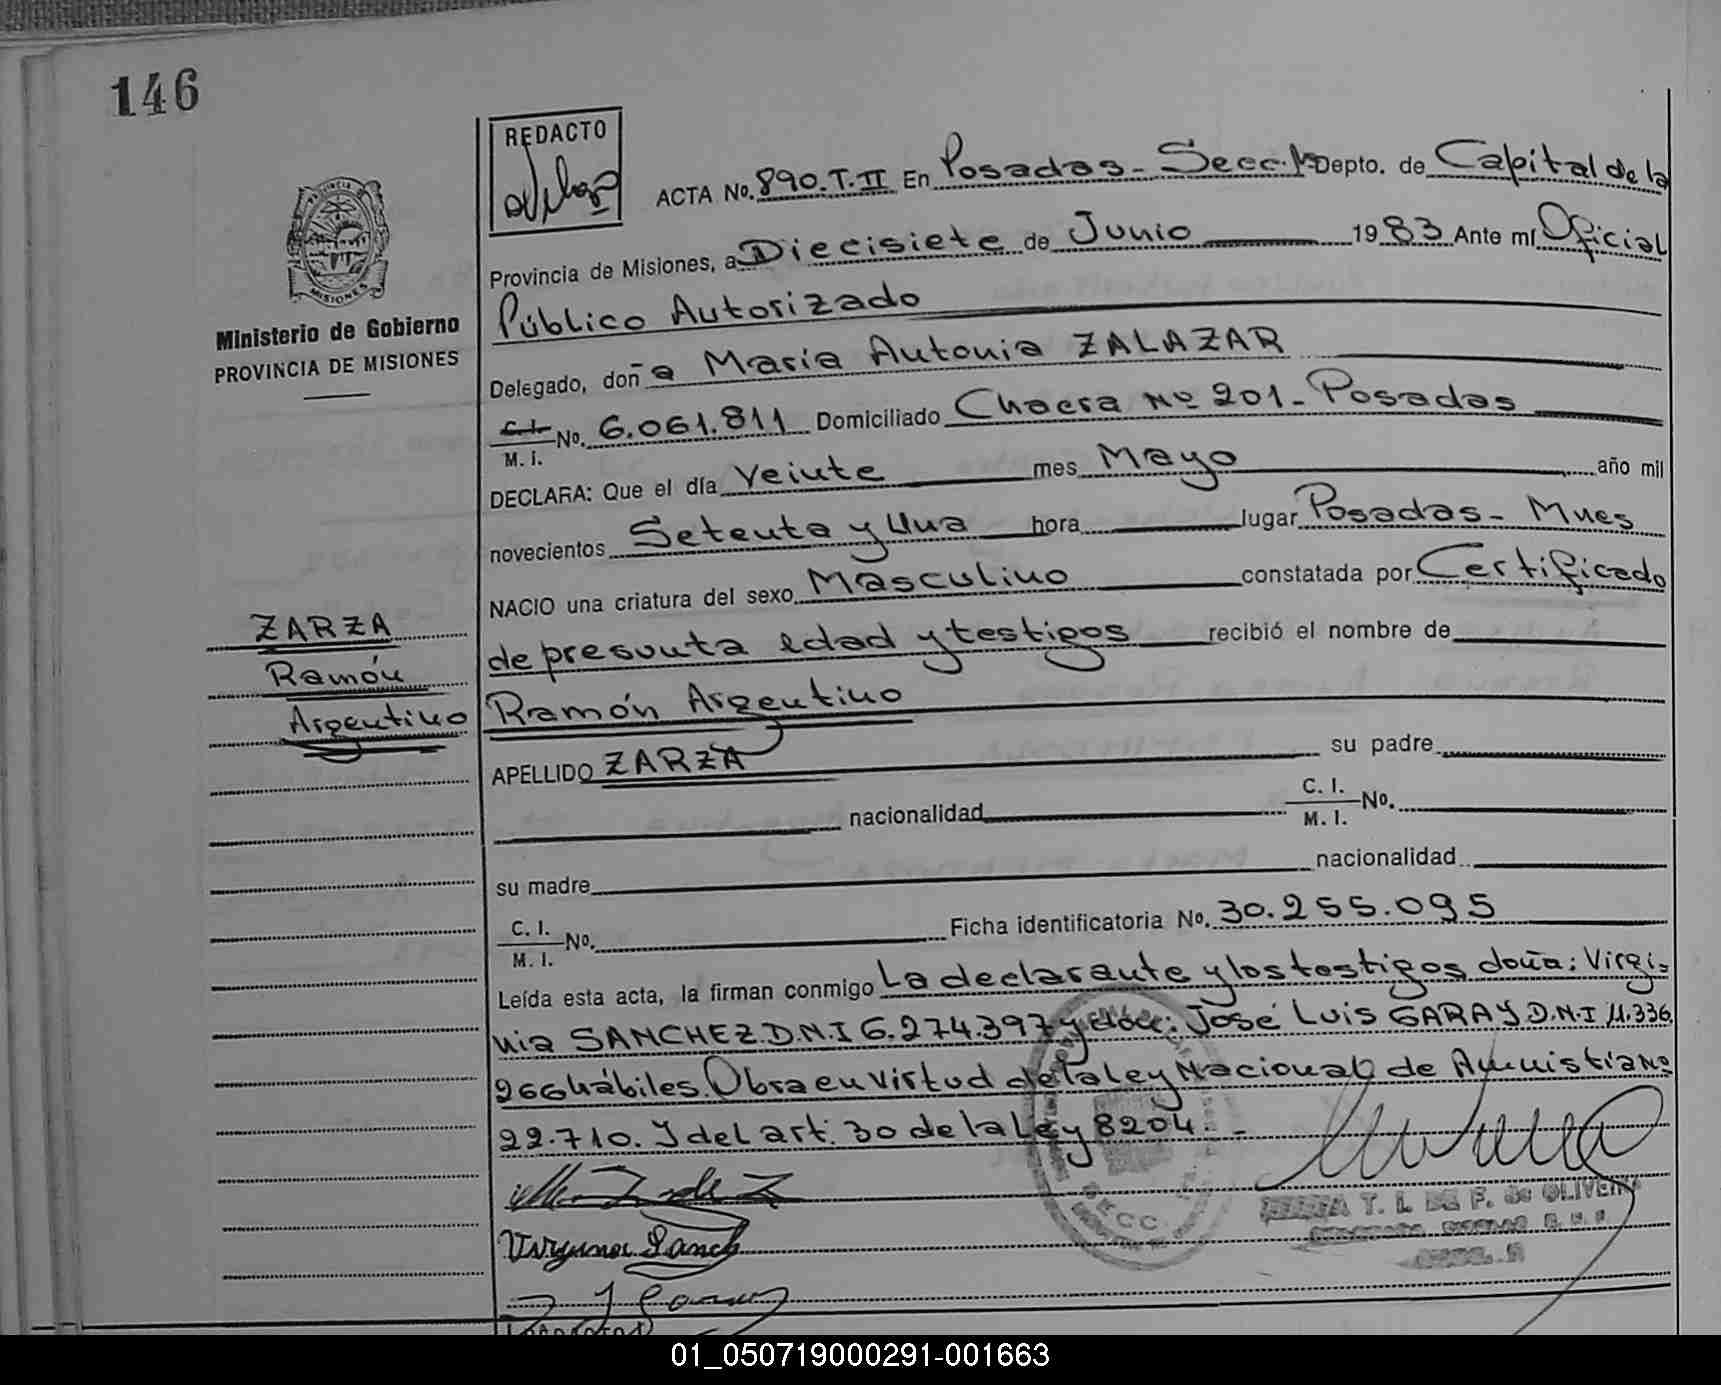 146
REDACTO
ACTA No. 890.T.II En Posadas - Secc. Depto. de Capital de la
PROVINCIA DE
MISIONES
Provincia de Misiones, a Diecisiete de Junio 1983 Ante mí Oficial
Público Autorizado
Ministerio de Gobierno
PROVINCIA DE MISIONES
Delegado, doña María Antonia ZALAZAR
C.I. M. I. No. 6.061.811 Domiciliado Chacra Nº 201 - Posadas
DECLARA: Que el día Veinte mes Mayo año mil
novecientos Setenta y Una hora lugar Posadas - Mnes
NACIO una criatura del sexo Masculino constatada por Certificado
de presunta edad y testigos recibió el nombre de
ZARZA
Ramón
Argentino
Ramón Argentino
APELLIDO ZARZA su padre
nacionalidad C. I. M. I. No.
su madre nacionalidad
C. I. M. I. No. Ficha identificatoria No. 30.255.095
Leída esta acta, la firman conmigo La declarante y los testigos doña: Virgi=
nia SANCHEZ.D.N.I 6.274.397 y don: José Luis GARAY D.N.I 11.336.
966 hábiles. Obra en virtud de la ley Nacional de Amnistía Nº
22.710. Y del art. 30 de la Ley 8204. -
Virginia Sanch
SECC
T. L. DE F. de OLIVEIRA
01_050719000291-001663